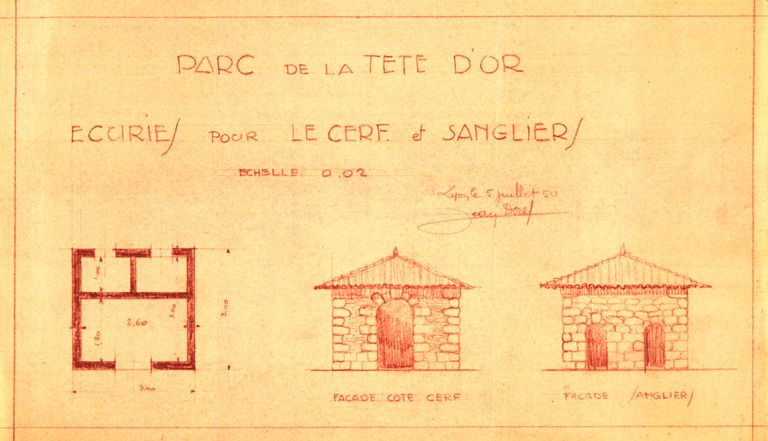 PARC DE LA TETE D'OR
ECURIES POUR LE CERF et SANGLIERS
ECHELLE 0.02
Lyon, le 5 juillet 50
1.00
3.00
2,60
1,80
3.00
3.00
FACADE COTE CERF
FACADE SANGLIERS